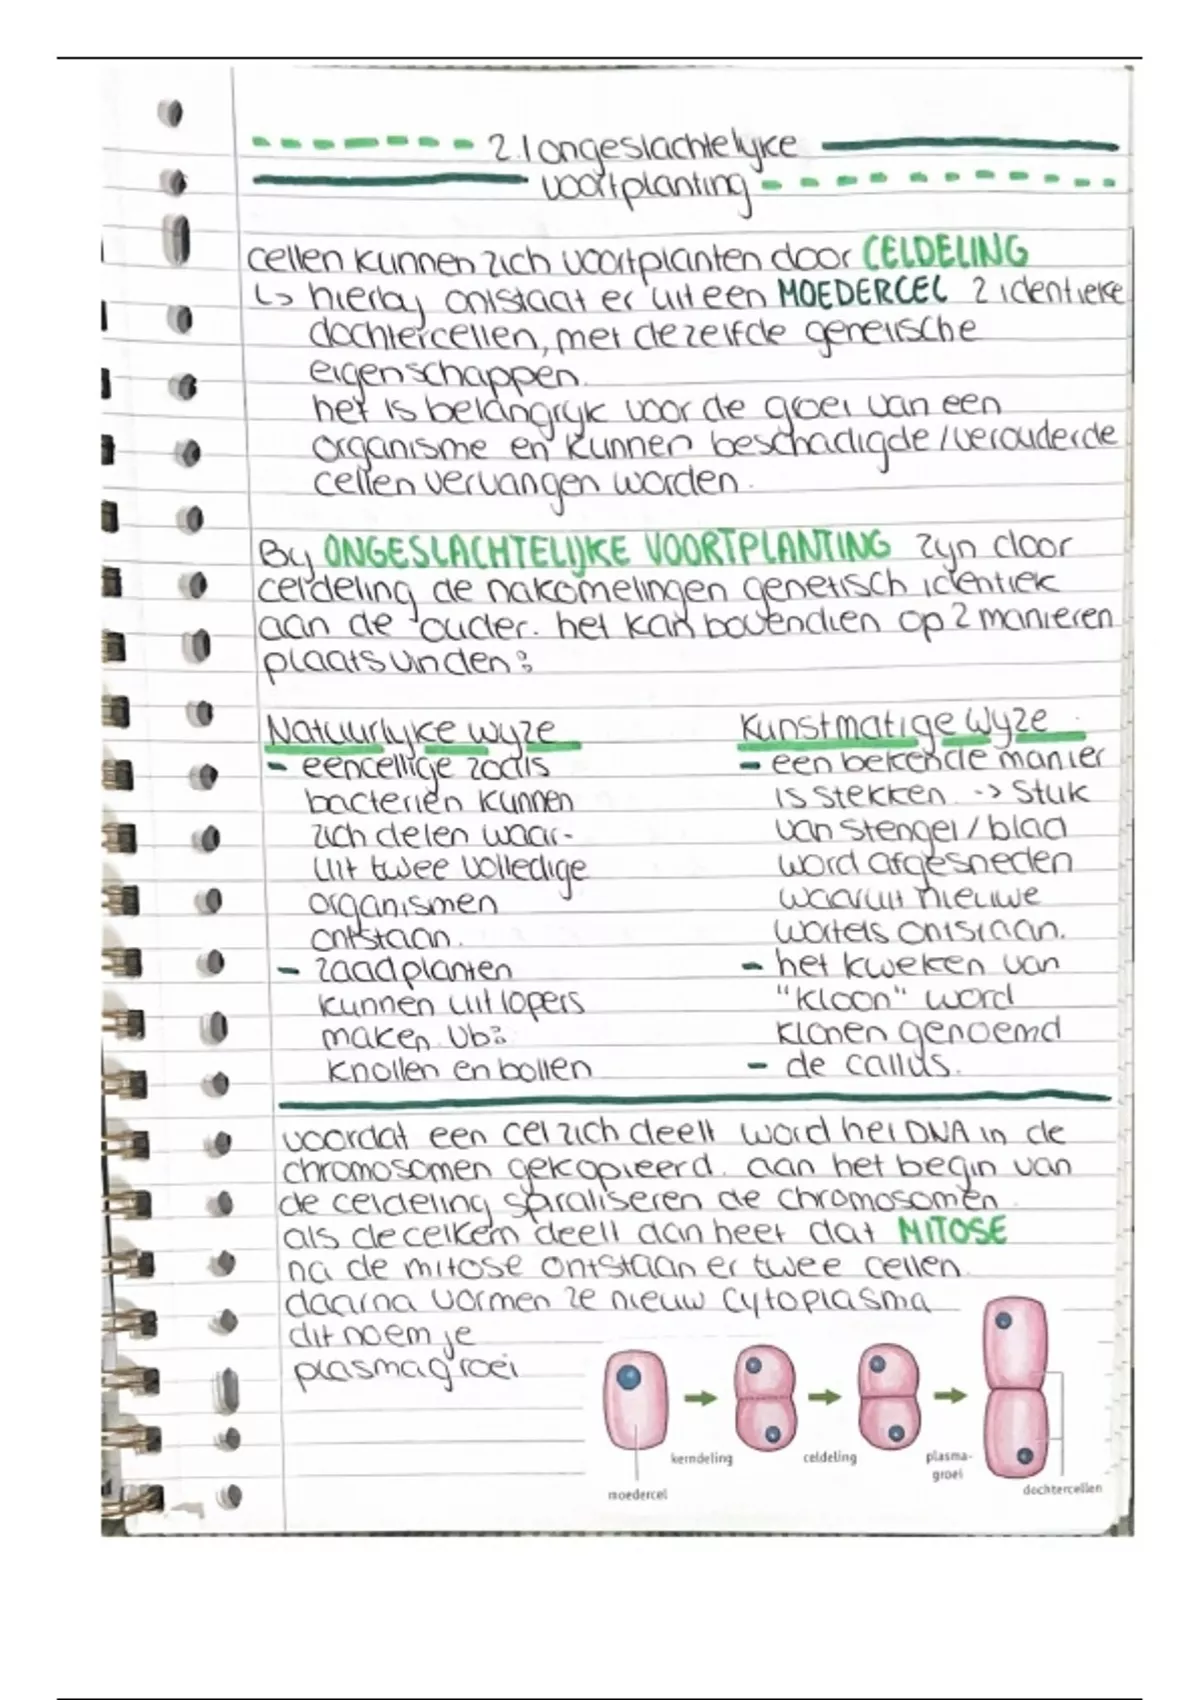 2.1 ongeslachtelijke
voortplanting
cellen kunnen zich voortplanten door CELDELING
↳ hierbij ontstaat er uit een MOEDERCEL 2 identieke
dochtercellen, met dezelfde genetische
eigenschappen.
het is belangrijk voor de groei van een
organisme en kunnen beschadigde/verouderde
cellen vervangen worden.
Bij ONGESLACHTELIJKE VOORTPLANTING zijn door
celdeling de nakomelingen genetisch identiek
aan de ouder. het kan bovendien op 2 manieren
plaatsvinden:
Natuurlijke wijze
- eencellige zoals
bacteriën kunnen
zich delen waar-
uit twee volledige
organismen
ontstaan.
- zaadplanten
kunnen uitlopers
maken. Vb:
knollen en bollen
Kunstmatige wijze
- een bekende manier
is stekken. -> Stuk
van stengel/blad
word afgesneden
waaruit nieuwe
wortels ontstaan.
- het kweken van
"kloon" word
klonen genoemd
- de callus.
voordat een cel zich deelt word het DNA in de
chromosomen gekopieerd. aan het begin van
de celdeling spiraliseren de chromosomen.
als de celkern deelt dan heet dat MITOSE
na de mitose ontstaan er twee cellen.
daarna vormen ze nieuw cytoplasma
dit noem je
plasmagroei
moedercel
kerndeling
celdeling
plasma-
groei
dochtercellen